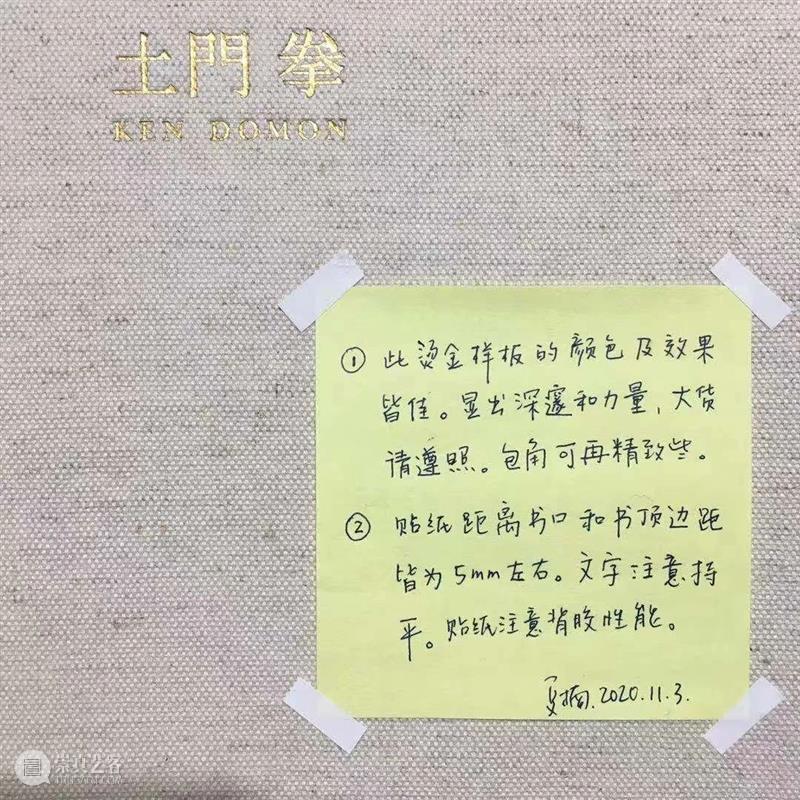 土門拳
KEN DOMON
① 此烫金样板的颜色及效果
皆佳。显出深邃和力量，大货
请遵照。包角可再精致些。
② 贴纸距离书口和书顶边距
皆为5mm左右。文字注意持
平。贴纸注意背胶性能。
2020.11.3.